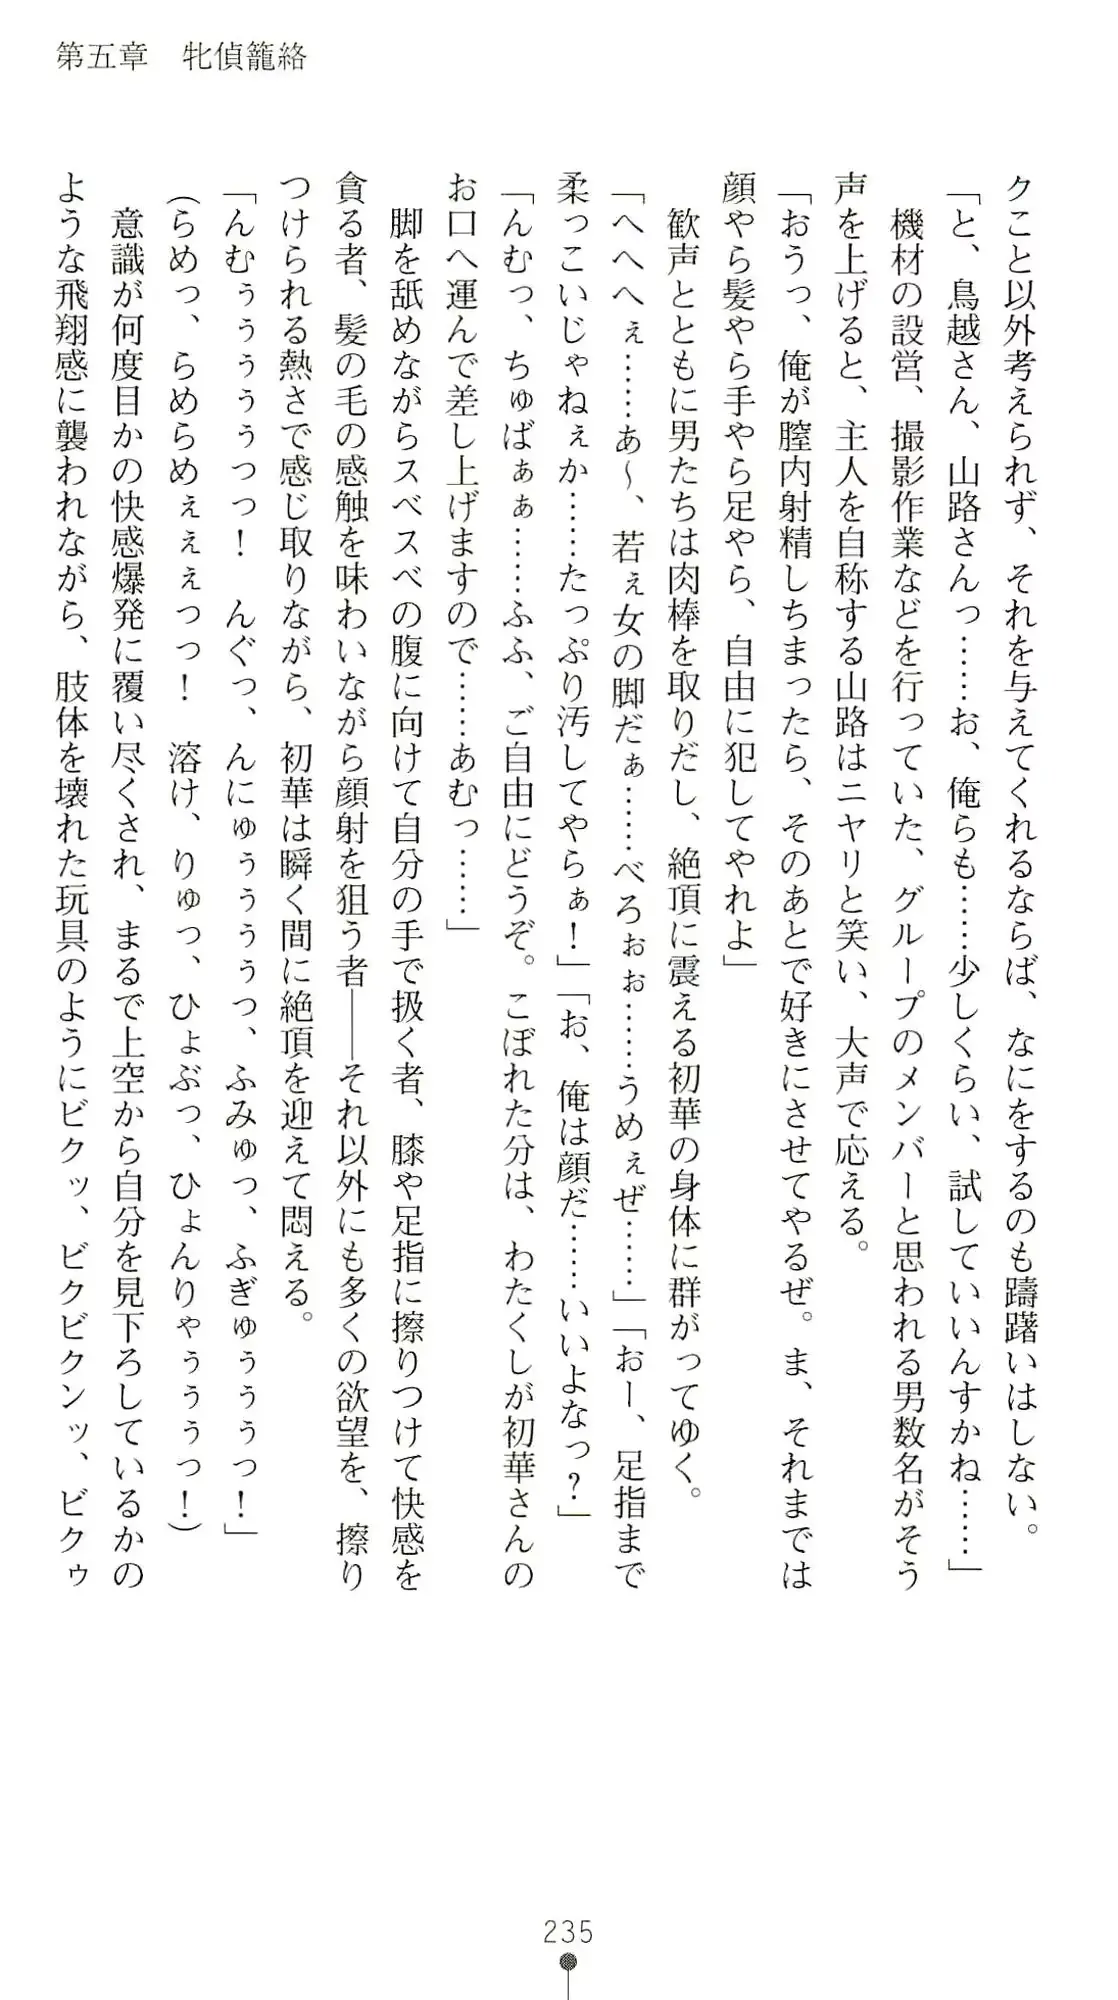 第五章　牝偵籠絡
クこと以外考えられず、それを与えてくれるならば、なにをするのも躊躇いはしない。
「と、鳥越さん、山路さんっ……お、俺らも……少しくらい、試していいんすかね……」
機材の設営、撮影作業などを行っていた、グループのメンバーと思われる男数名がそう
声を上げると、主人を自称する山路はニヤリと笑い、大声で応える。
「おうっ、俺が膣内射精しちまったら、そのあとで好きにさせてやるぜ。ま、それまでは
顔やら髪やら手やら足やら、自由に犯してやれよ」
歓声とともに男たちは肉棒を取りだし、絶頂に震える初華の身体に群がってゆく。
「へへへぇ……あ～、若ぇ女の脚だぁ……べろぉぉ……うめぇぜ……」「おー、足指まで
柔っこいじゃねぇか……たっぷり汚してやらぁ！」「お、俺は顔だ……いいよなっ？」
「んむっ、ちゅばぁぁ……ふふ、ご自由にどうぞ。こぼれた分は、わたくしが初華さんの
お口へ運んで差し上げますので……あむっ……」
脚を舐めながらスベスベの腹に向けて自分の手で扱く者、膝や足指に擦りつけて快感を
貪る者、髪の毛の感触を味わいながら顔射を狙う者――それ以外にも多くの欲望を、擦り
つけられる熱さで感じ取りながら、初華は瞬く間に絶頂を迎えて悶える。
「んむぅぅぅぅっっ！　んぐっ、んにゅぅぅぅぅっ、ふみゅっ、ふぎゅぅぅぅっ！」
（らめっ、らめらめぇぇぇっっ！　溶け、りゅっ、ひょぶっ、ひょんりゃぅぅぅっ！）
意識が何度目かの快感爆発に覆い尽くされ、まるで上空から自分を見下ろしているかの
ような飛翔感に襲われながら、肢体を壊れた玩具のようにビクッ、ビクビクンッ、ビクゥ
235